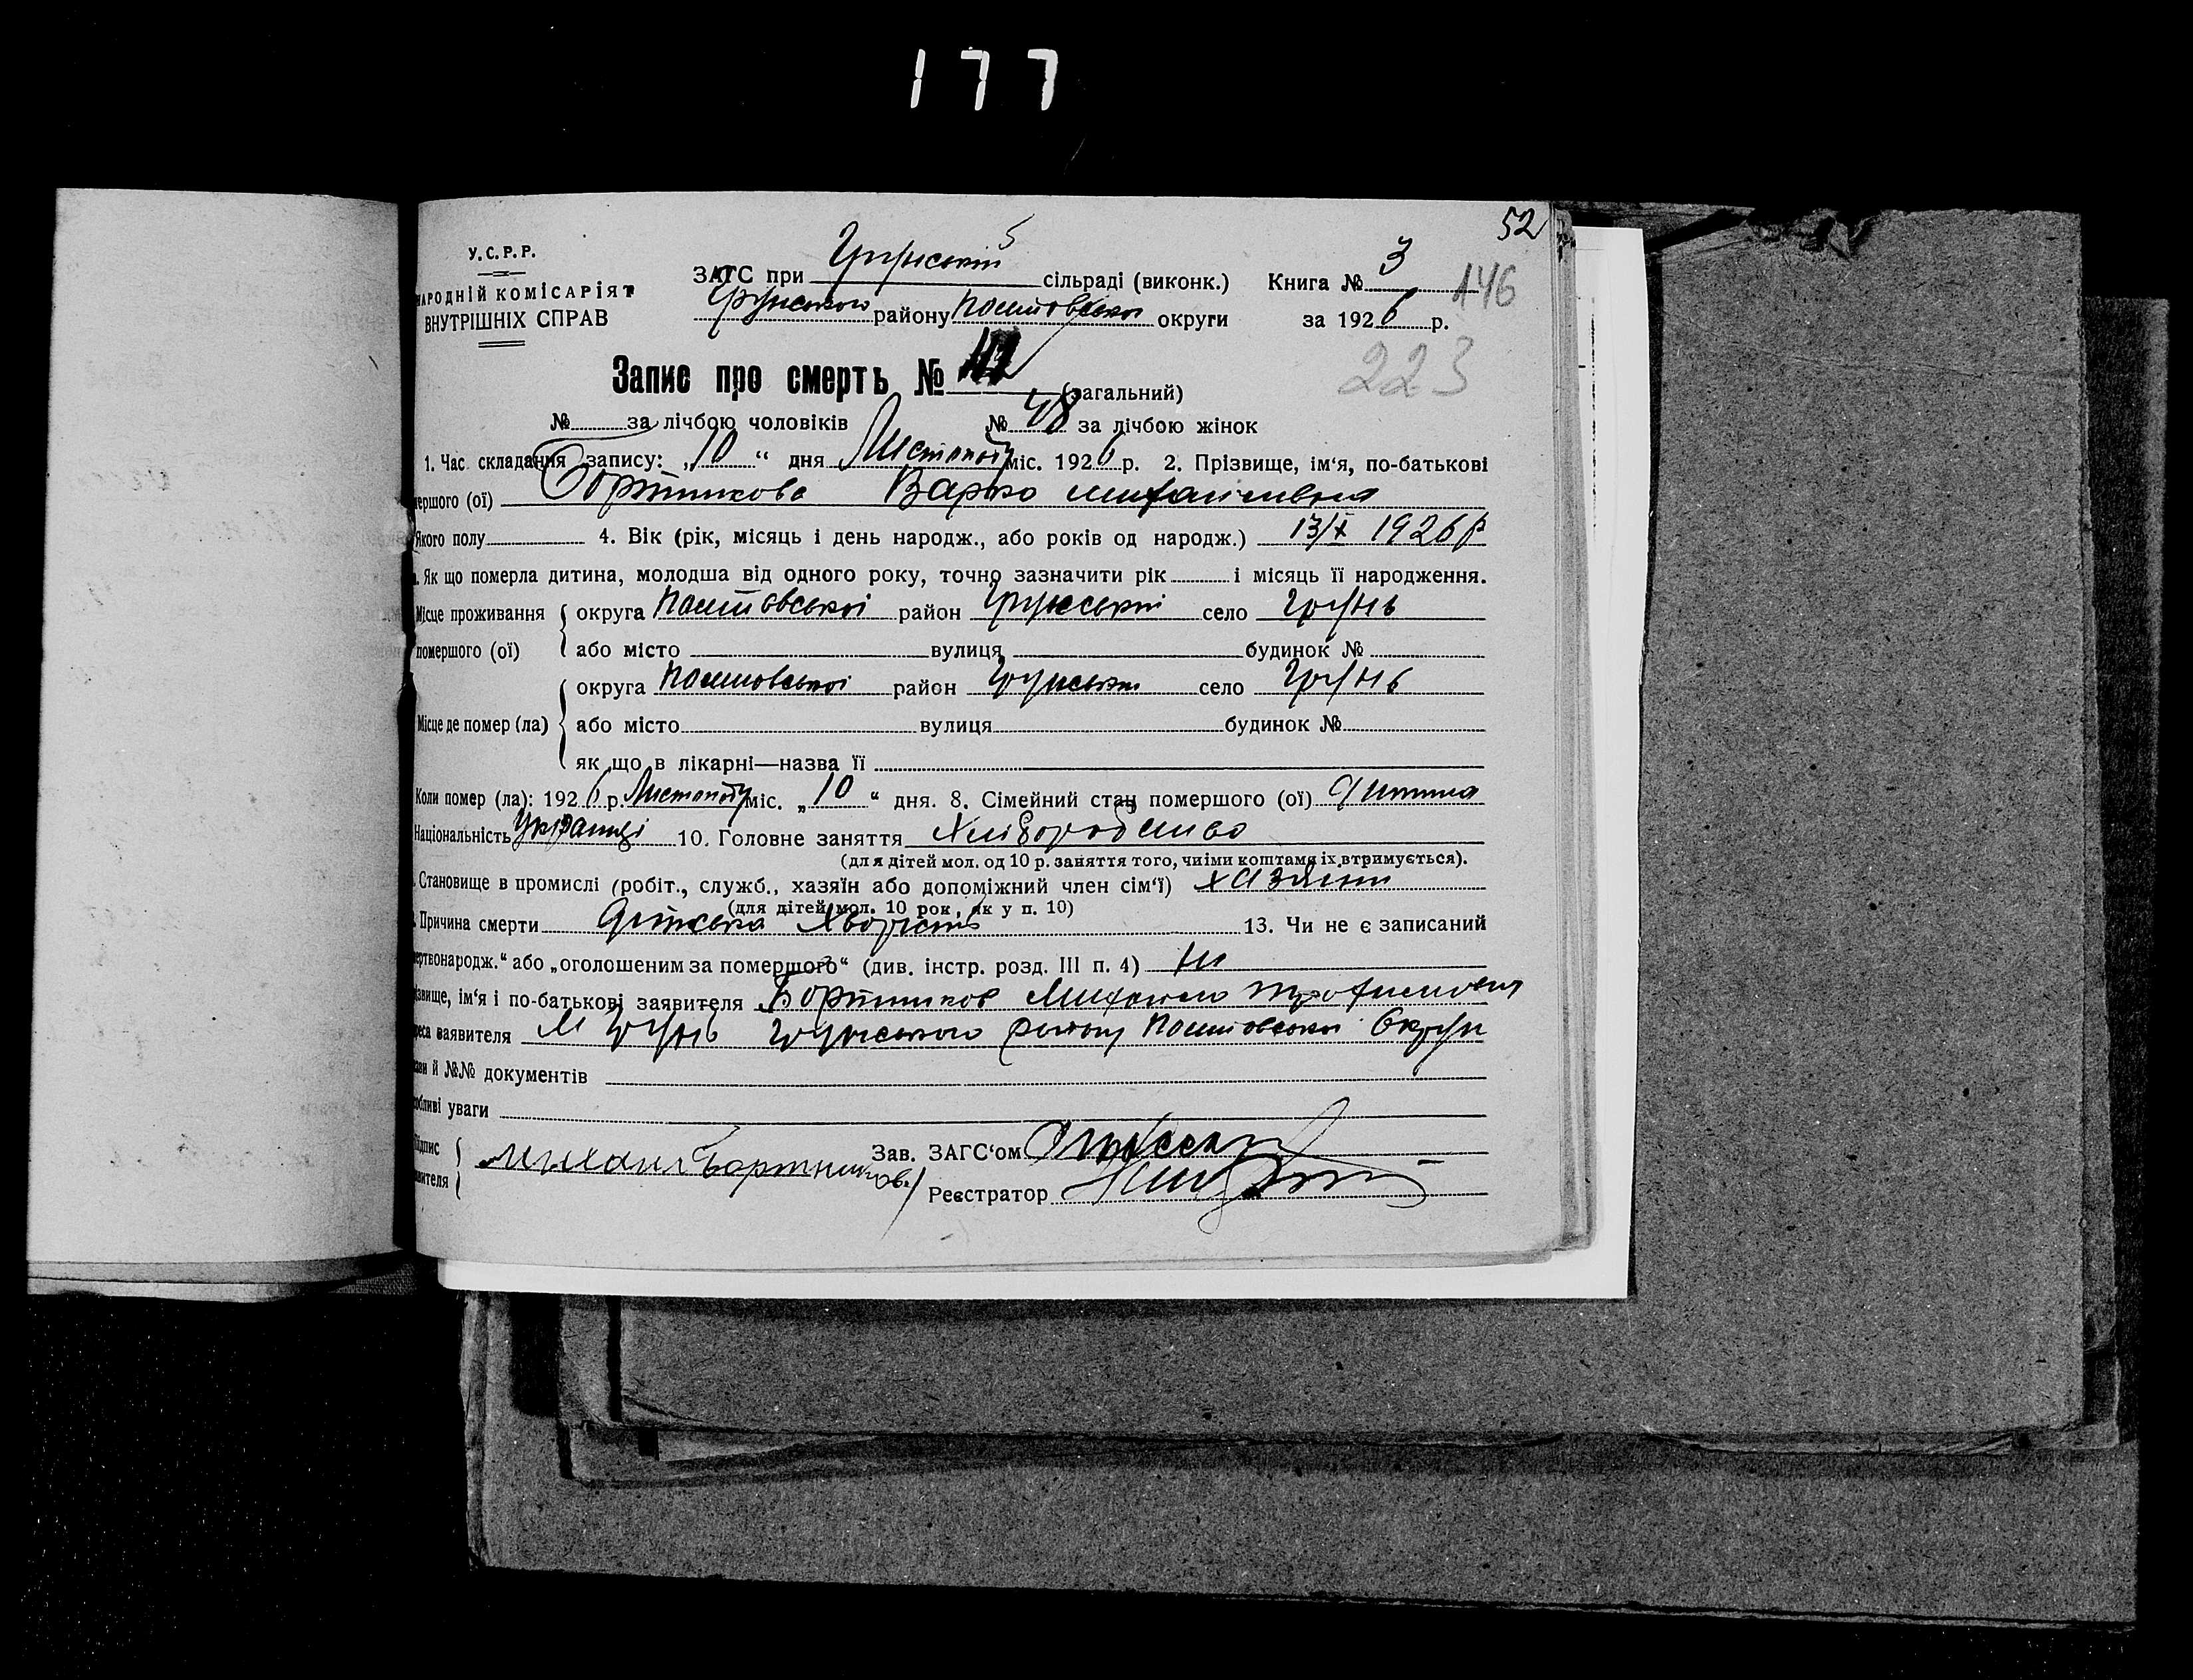 177
52
У.С.Р.Р.
НАРОДНІЙ КОМІСАРІЯТ
ВНУТРІШНІХ СПРАВ
ЗАГС при Грунській сільраді (виконк.) Книга № 3
146
Грунського району Полтовської округи за 1926 р.
Запис про смерть № (загальний)
223
№ за лічбою чоловіків № 48 за лічбою жінок
1. Час складання запису: „10“ дня Листопаду міс. 1926 р. 2. Прізвище, ім‘я, по-батькові
мершого (ої) Бортникова Варка Михайловна
Якого полу 4. Вік (рік, місяць і день народж., або років од народж.) 13/X 1926 р
. Як що померла дитина, молодша від одного року, точно зазначити рік і місяць її народження.
Місце проживання округа Полтовської район Грунський село Грунь
померщого (ої) або місто вулиця будинок №
округа Полтовської район Грунський село Грунь
Місце де помер (ла) або місто вулиця будинок №
як що в лікарні—назва її
Коли помер (ла): 1926 р. Листопаду міс. „10“ дня. 8. Сімейний стан помершого (ої) Дитина
Національність Українці 10. Головне заняття Хліборобство
(для дітей мол. од 10 р. заняття того, чиїми коштами їх втримується).
. Становище в промислі (робіт., служб., хазяїн або допоміжний член сім‘ї) хазяїни
(для дітей мол. 10 рок, як у п. 10)
. Причина смерти Дітська хворість 13. Чи не є записаний
ертвонародж.“ або „оголошеним за помершого“ (див. інстр. розд. III п. 4) ні
ізвище, ім‘я і по-батькові заявителя Бортников Михайло Трофимович
реса заявителя М Грунь Грунського району Полтовської Округи
ви й №№ документів
обливі уваги
Підпис Михаил Бортников Зав. ЗАГС‘ом
вителя Реєстратор